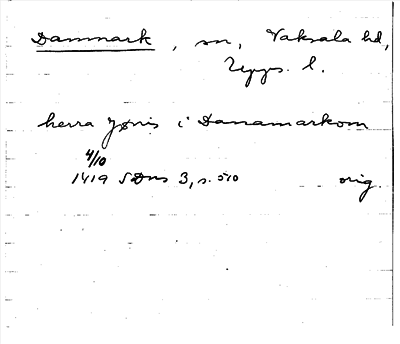 Danmark, sn, Vaksala hd,
Upps. l.
herra Jønis i Danamarkom
4/10
1419 SDns 3, s. 510
orig.